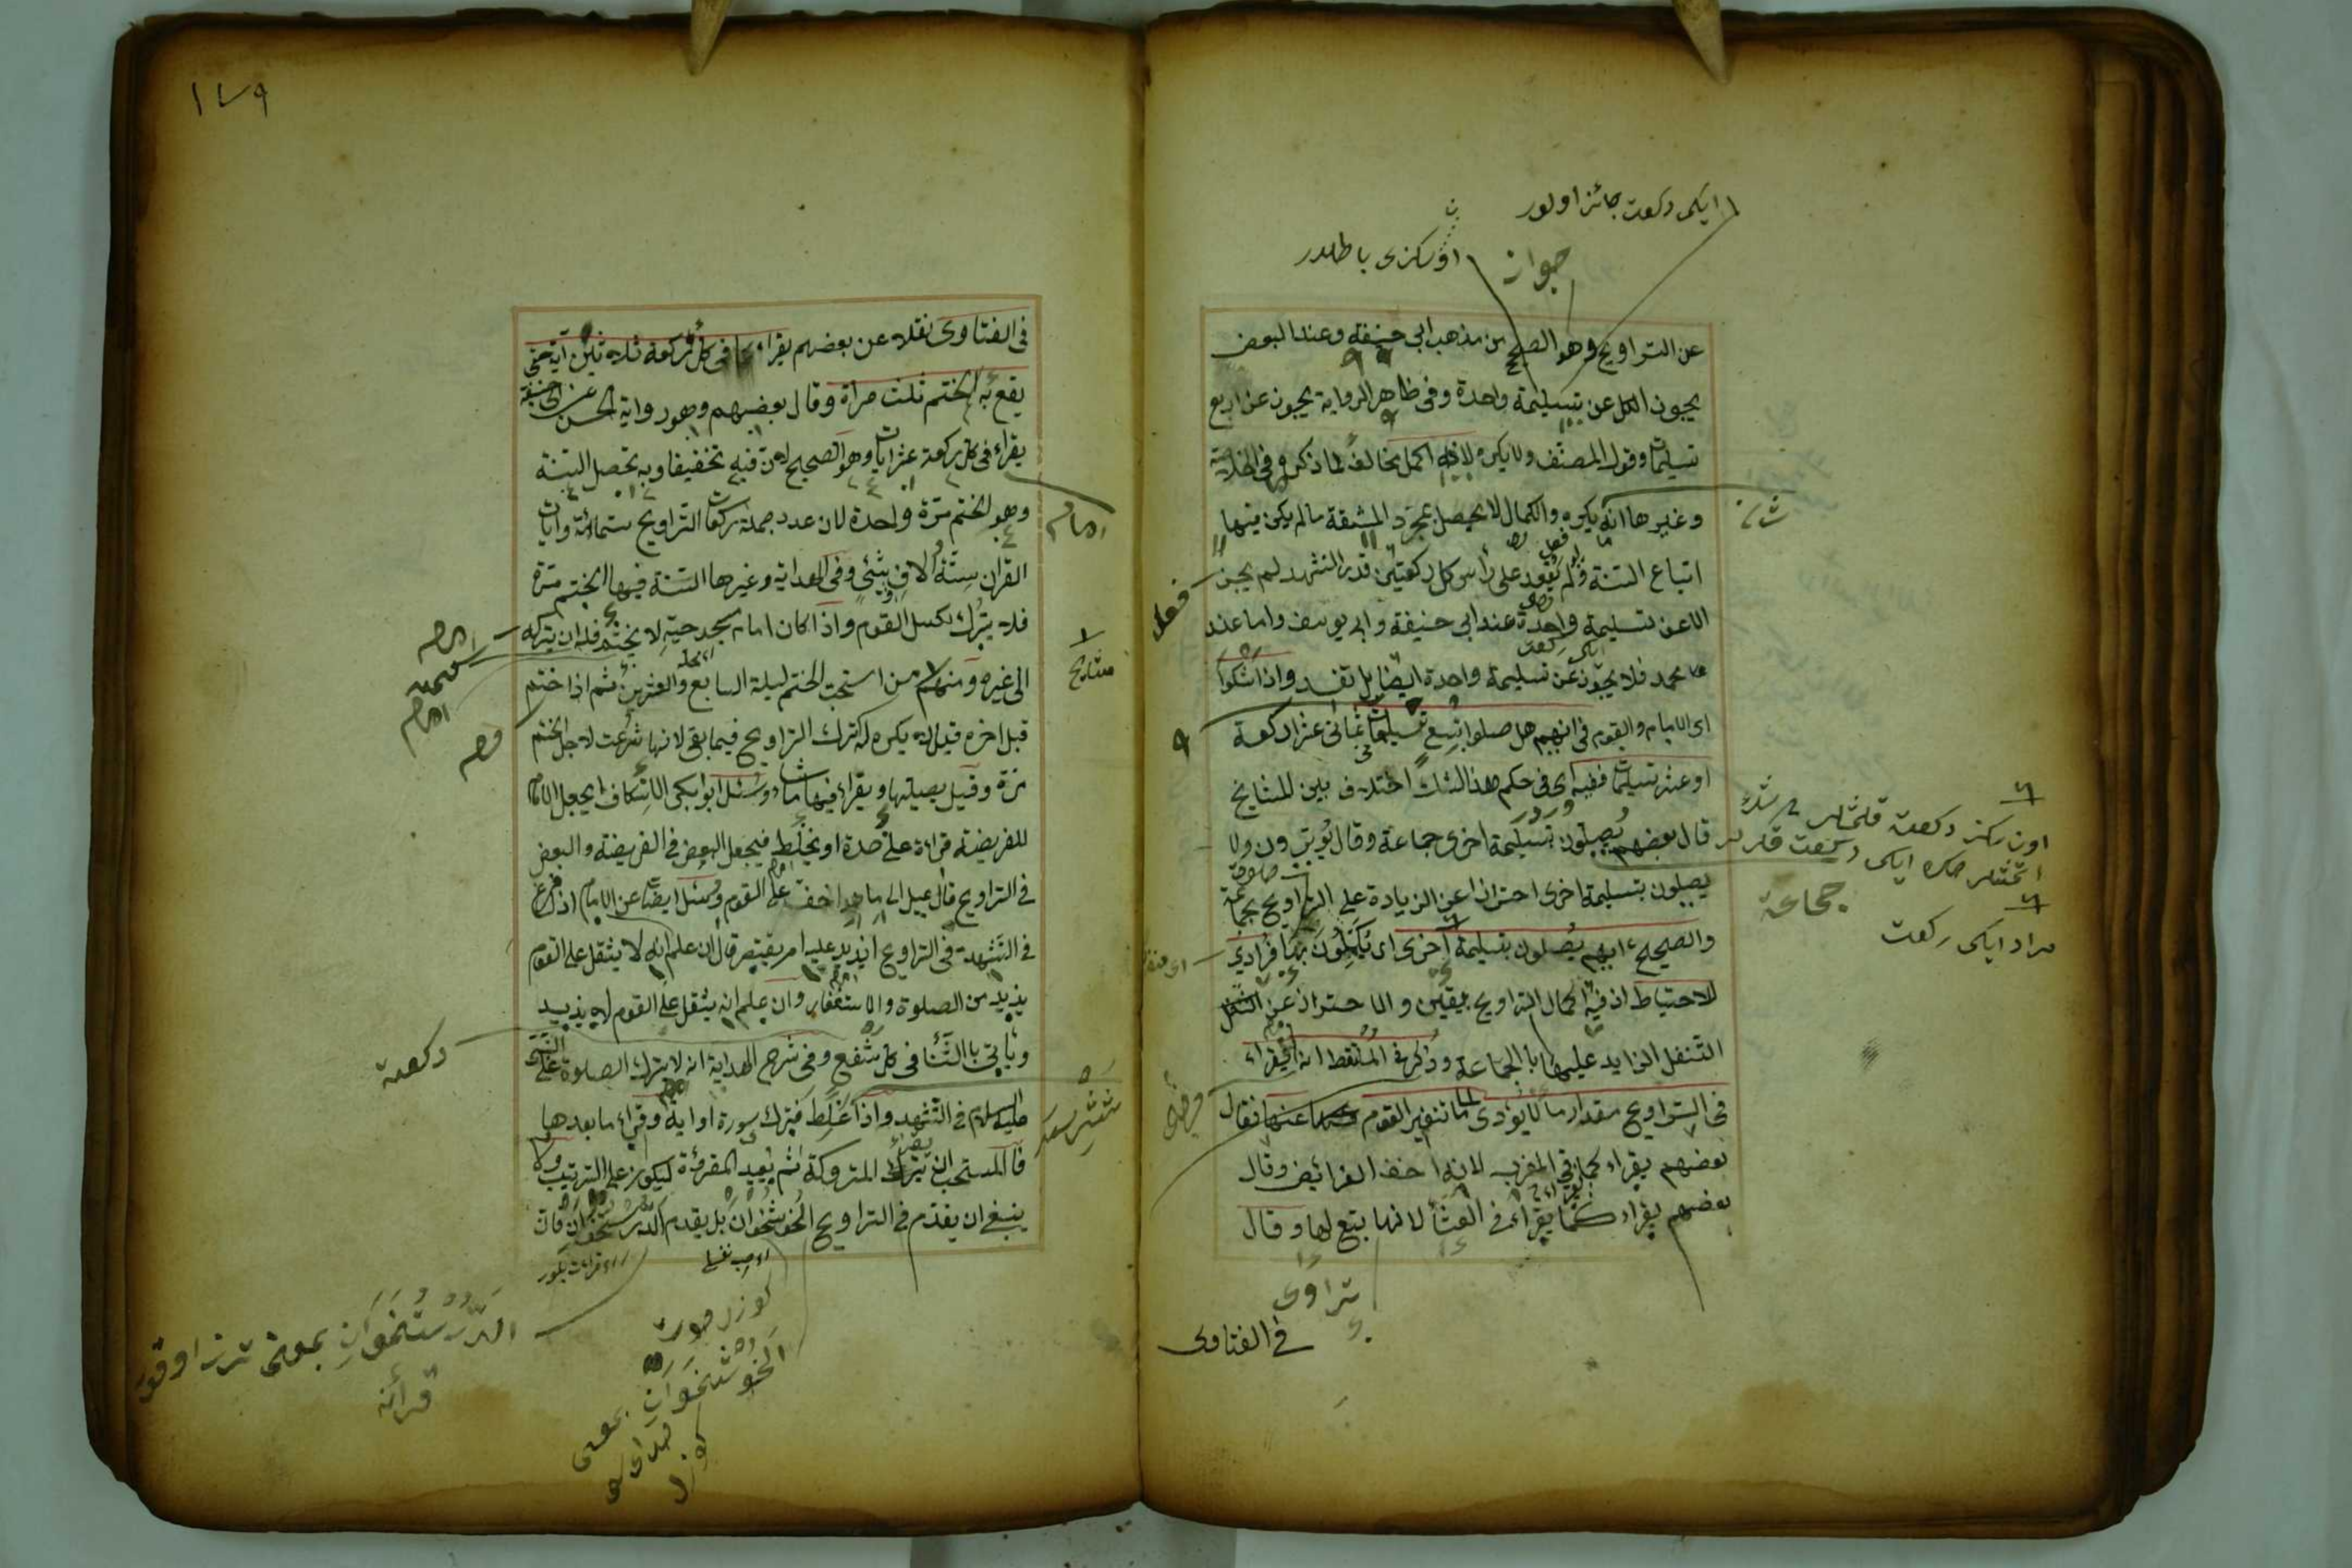 ايكى ركعت جائز اولور
جواز
اوسكزى باطلدر
عن التراويح وهو الصحيح من مذهب ابي حنيفة وعند البعض
يجوز الكل عن تسليمة واحدة وفى ظاهر الرواية يجوز عن اربع
تسليمات وقول المصنف ولا يكره لانه اكمل مخالف لما ذكر فى الخلاصة
وغيرها انه يكره والكمال لا يحصل بمجرد المشقة ما لم يكن فيها
اتباع السنة ولو لم يقعد على رأس كل ركعتين قدر التشهد لم يجز
الا عن تسليمة واحدة عند ابى حنيفة وابى يوسف واما عند
محمد فلا يجوز عن تسليمة واحدة ايضا بل تفسد واذا شكوا
اى الامام والقوم فى انهم هل صلوا تسع تسليمات ثمانى عشر ركعة
او عشر تسليمات ففيه اى فى حكم هذا الشك اختلاف بين المشايخ
قال بعضهم يصلون تسليمة اخرى جماعة وقال يوترون ولا
يصلون بتسليمة اخرى احترازا عن الزيادة على التراويح بجماعة
والصحيح انهم يصلون بتسليمة اخرى اى يكملون بها فرادى
للاحتياط اذ فيه اكمال التراويح بيقين والاحتراز عن التنفل
التنفل الزايد عليها بالجماعة وذكر فى الملتقط انه يقراء
فى التراويح مقدار ما لا يؤدى الى تنفير القوم عنها فقال
بعضهم يقراء كما فى المغرب لانه اخف الفرائض وقال
بعضهم يقراء كما يقراء فى العشأ لانها تبع لها وقال
فى الفتاوى
تراوى
جماعة
مراد ايكى ركعت
١٧٩
فى الفتاوى نقلا عن بعضهم يقراء فى كل ركعة ثلاثين آية حتى
يقع به الختم ثلث مراة وقال بعضهم وهو رواية الحسن عن ابى حنيفة
يقراء فى كل ركعة عشر ايات وهو الصحيح لان فيه تخفيفا وبه تحصل السنة
وهو الختم مرة واحدة لان عدد جملة ركعات التراويح ستمائة وايات
القران ستة الاف وشئى وفى الهداية وغيرها السنة فيها الختم مرة
فلا يترك لكسل القوم واذا كان امام مسجد حيه لا يختم فله ان يتركه
الى غيره ومنهم من استحب الختم ليلة السابع والعشرين ثم اذا ختم
قبل اخره قيل لا يكره له ترك التراويح فيما بقى لانها شرعت لاجل الختم
مرة وقيل يصليها ويقراء فيها ما شاء وسئل ابو بكر الاسكاف ايجعل الامام
للفريضة قراءة على حدة او يخلط فيجعل البعض فى الفريضة والبعض
فى التراويح قال يميل الى ما هو اخف على القوم وسئل ايضا عن الامام اذا فرغ
فى التشهد فى التراويح ايزيد عليه ام يقتصر قال ان علم انه لا يثقل على القوم
يزيد من الصلوة والاستغفار وان علم انه يثقل على القوم لا يزيد
ويأتى بالثنا فى كل شفع وفى شرح الهداية انه لا يترك الصلوة على النبى
عليه السلام فى التشهد واذا غلط فترك سورة او اية وقراء ما بعدها
فالمستحب ان يقراء المتروكة ثم يعيد المقروة ليكون على الترتيب ولا
ينبغى ان يقدم فى التراويح الخوشخوان بل يقدم الدرستخوان فان
امام
مشايخ
ركعت
الدرستخوان بمعنى ترز اوقور
قرائه
كوزل صوت
الخوشخوان بمعنى
كوزل